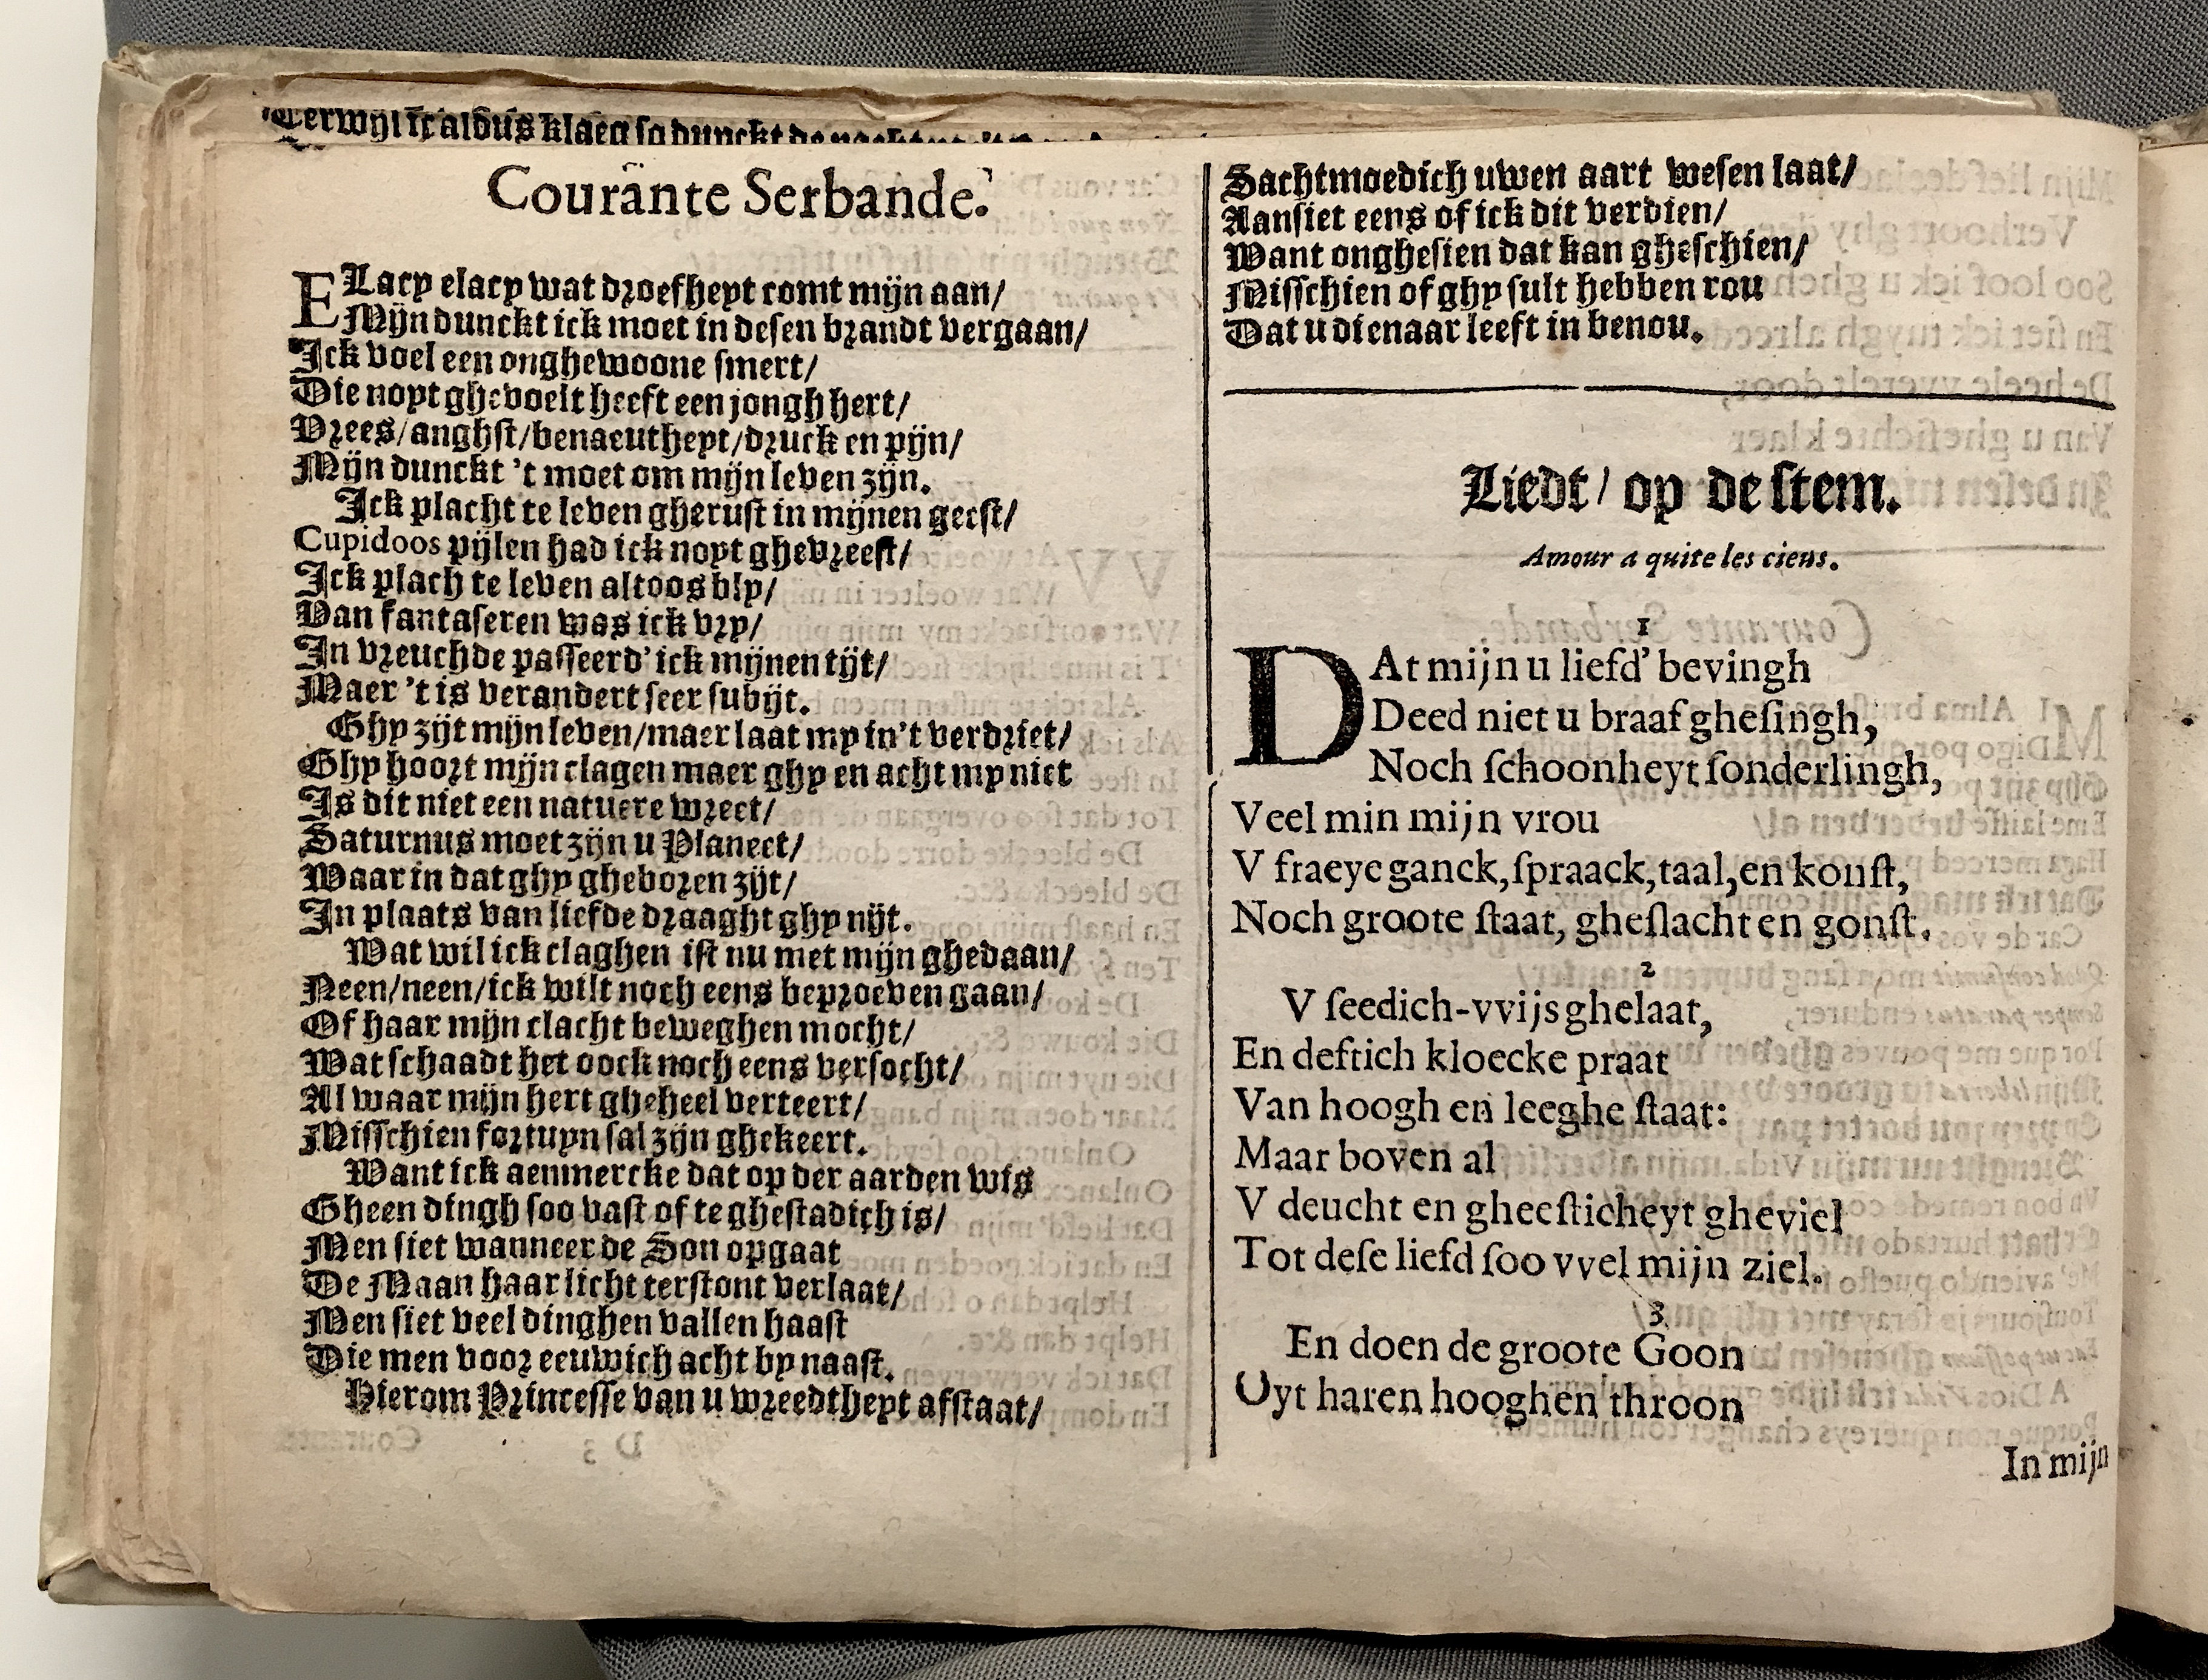 Terwijl ick aldus klaeg so dunckt
Courante Serbande.
ELacy elacy wat droefheyt comt mijn aan/
Mijn dunckt ick moet in desen brandt vergaan/
Ick voel een onghewoone smert/
Die noyt ghevoelt heeft een jongh hert/
Vrees/anghst/benaeutheyt/druck en pijn/
Mijn dunckt 't moet om mijn leven zijn.
Ick placht te leven gherust in mijnen geest/
Cupidoos pijlen had ick noyt ghevreest/
Ick plach te leven altoos bly/
Van fantaseren was ick vry/
In vreuchde passeerd' ick mijnen tijt/
Maer 't is verandert seer subijt.
Ghy zijt mijn leven/maer laat my in't verdriet/
Ghy hoort mijn clagen maer ghy en acht my niet
Is dit niet een natuere wreet/
Saturnus moet zijn u Planeet/
Waar in dat ghy gheboren zijt/
In plaats van liefde draaght ghy nijt.
Wat wil ick claghen ist nu met mijn ghedaan/
Neen/neen/ick wilt noch eens beproeven gaan/
Of haar mijn clacht beweghen mocht/
Wat schaadt het oock noch eens versocht/
Al waar mijn hert gheheel verteert/
Misschien fortuyn sal zijn ghekeert.
Want ick aenmercke dat op der aarden wis
Gheen dingh soo vast of te ghestadich is/
Men siet wanneer de Son opgaat
De Maan haar licht terstont verlaat/
Men siet veel dinghen vallen haast
Die men voor eeuwich acht by naast.
Hierom Princesse van u wreedtheyt afstaat/
Sachtmoedich uwen aart wesen laat/
Aansiet eens of ick dit verdien/
Want onghesien dat kan gheschien/
Misschien of ghy sult hebben rou
Dat u dienaar leeft in benou.
Liedt/ op de stem.
Amour a quite les ciens.
1
DAt mijn u liefd' bevingh
Deed niet u braaf ghesingh,
Noch schoonheyt sonderlingh,
Veel min mijn vrou
V fraeye ganck, spraack, taal, en konst,
Noch groote staat, gheslacht en gonst.
2
V seedich-vvijs ghelaat,
En deftich kloecke praat
Van hoogh en leeghe staat:
Maar boven al
V deucht en gheesticheyt gheviel
Tot dese liefd soo vvel mijn ziel.
3
En doen de groote Goon
Uyt haren hooghen throon
In mijn